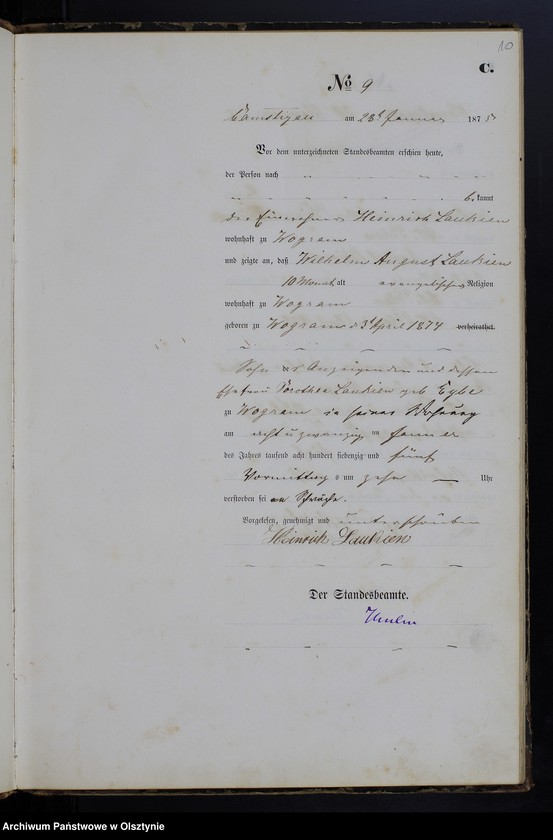 10
C.
No 9
am 28t Januar 1875
Vor dem unterzeichneten Standesbeamten erschien heute,
der Person nach
bekannt
der Einwohner Heinrich Laukien
wohnhaft zu Wogram
und zeigte an, daß Wilhelm August Laukien
10 Monat alt evangelischer Religion
wohnhaft zu Wogram
geboren zu Wogram d 3t April 1874 verheirathet
Sohn des Anzeigenden und dessen
Ehefrau Dorothea Laukien geb
zu Wogram in seiner Wohnung
am acht u zwanzig ten Januar
des Jahres tausend acht hundert siebenzig und fünf
Vormittag s um zehn Uhr
verstorben sei an Schwäche.
Vorgelesen, genehmigt und unterschrieben
Heinrich Laukien
Der Standesbeamte.
Archiwum Państwowe w Olsztynie